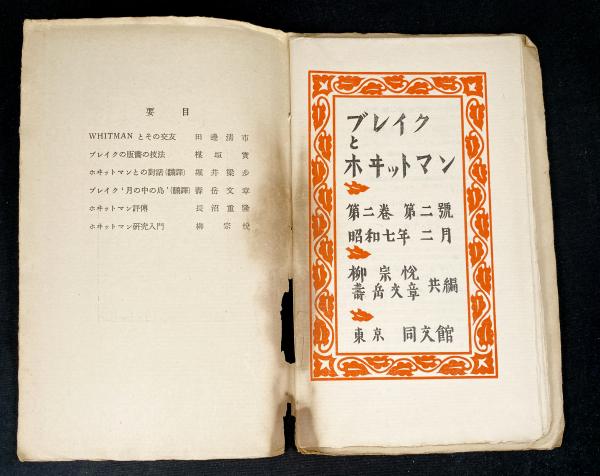 要目
WHITMAN とその交友 田邊清市
ブレイクの版畫の技法 寛
ホヰットマンとの對話(飜譯) 堀井梁歩
ブレイク「月の中の島」(飜譯) 壽岳文章
ホヰットマン評傳 長沼重隆
ホヰットマン研究入門 柳宗悦
ブレイク
と
ホヰットマン
第二巻 第二號
昭和七年 二月
柳宗悅
壽岳文章 共編
東京 同文館